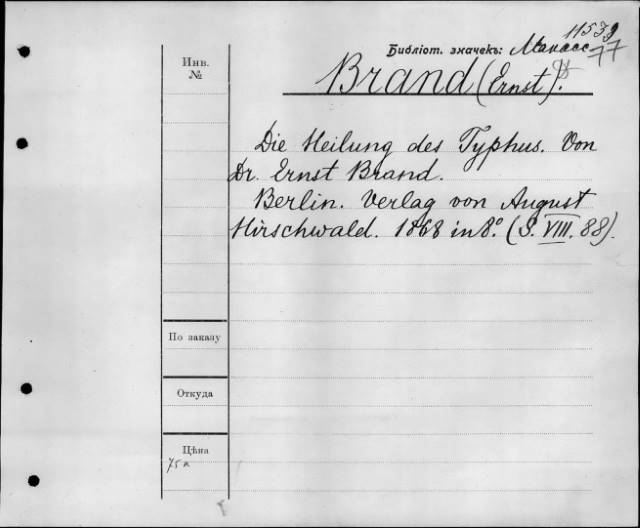 11539
Библiот. значекъ: Манасс
77
Инв.
№
Brand (Ernst).
Die Heilung des Typhus. Von
Dr. Ernst Brand.
Berlin. Verlag von August
Hirschwald. 1868 in 8.° (S. VIII. 88).
По заказу
Откуда
Цѣна
75к